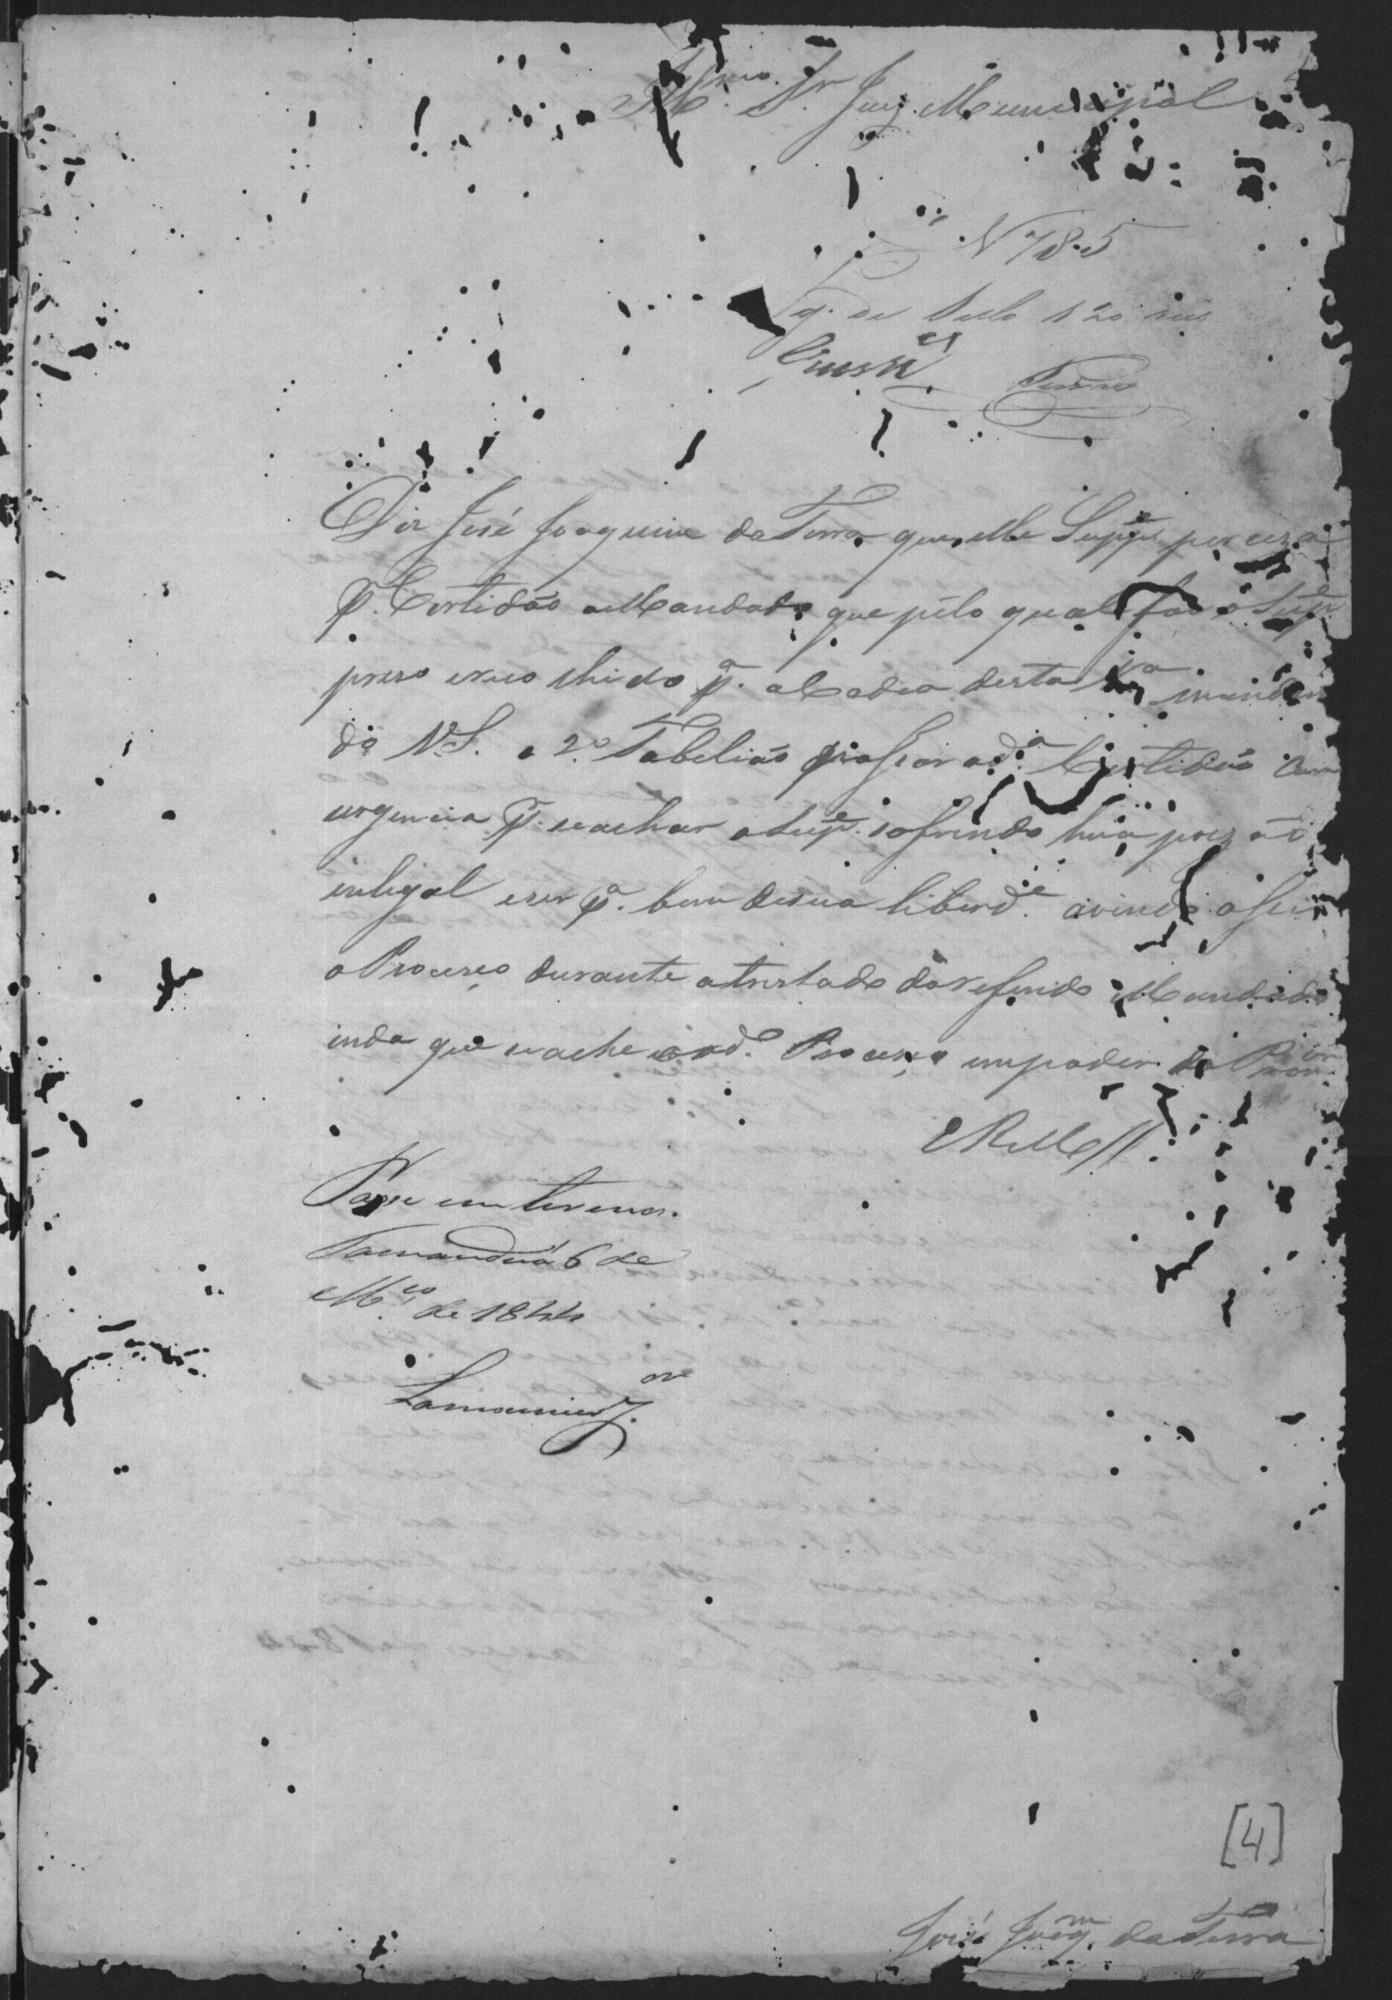 Ill.mo Sr. Juiz Municipal
N 785
Pg. de Sello 120 reis
Diz José Joaquim da Terra que elle Supp.e perciza
p.r Certidão o Mandado que pelo qual foi o Sup.e
prezo e recolhido p.a a Cadea desta V.a mandan
do V.S. o 2.o Tabelião passar a d.a Certidão com
urgencia p.r se achar o Sup.e sofrendo huã prezão
inlegal e ser p.a bem de sua liberd.e avendo assim
o Proceço durante o trestado do refirido Mandado
inda que se ache o d.o Proceço em poder do
E R M.ce
Passe em termos.
Tamanduá 6 de
M.ço de 1844
Lamounier J.or
[4]
José Joaq.m da Terra